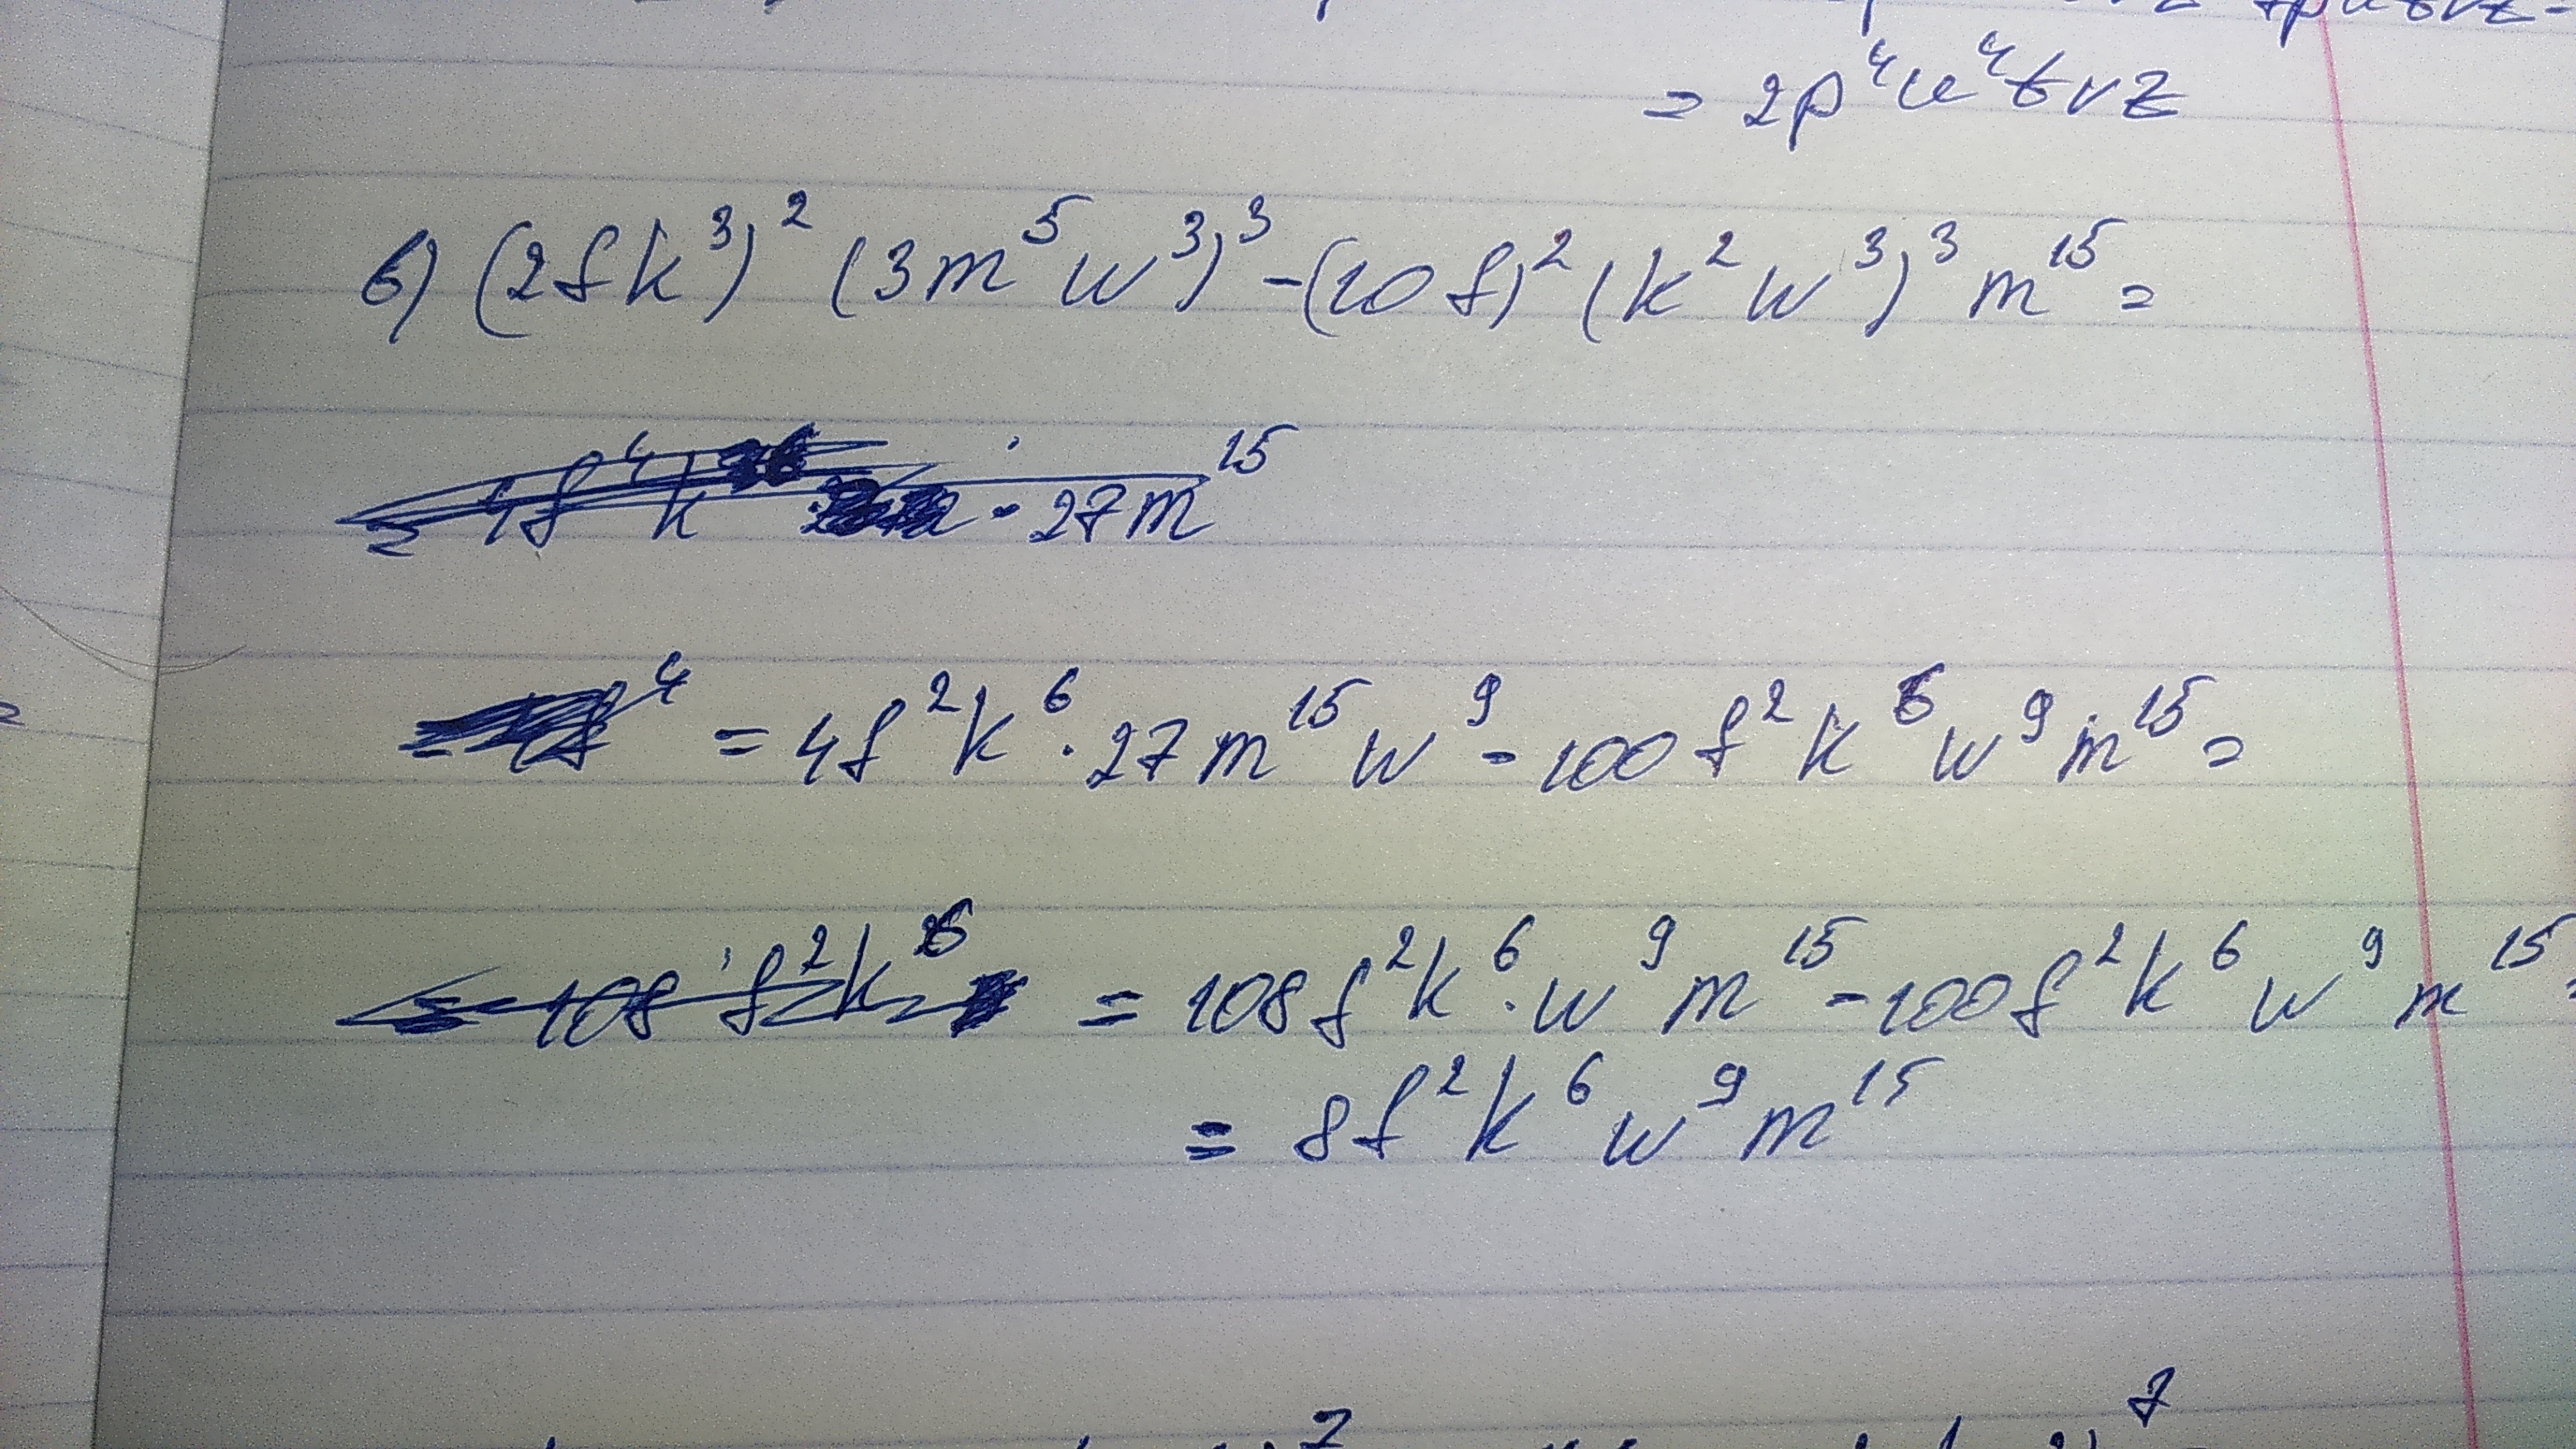 = 2p⁴u⁴tvz
б) (2fk³)² (3m⁵w³)³ - (10f)² (k²w³)³ m¹⁵ =
= 4f⁴k · 27m¹⁵
= 4f²k⁶ · 27m¹⁵w⁹ - 100f²k⁶w⁹m¹⁵ =
= 108f²k⁶ = 108f²k⁶ · w⁹m¹⁵ - 100f²k⁶w⁹m¹⁵ =
= 8f²k⁶w⁹m¹⁵